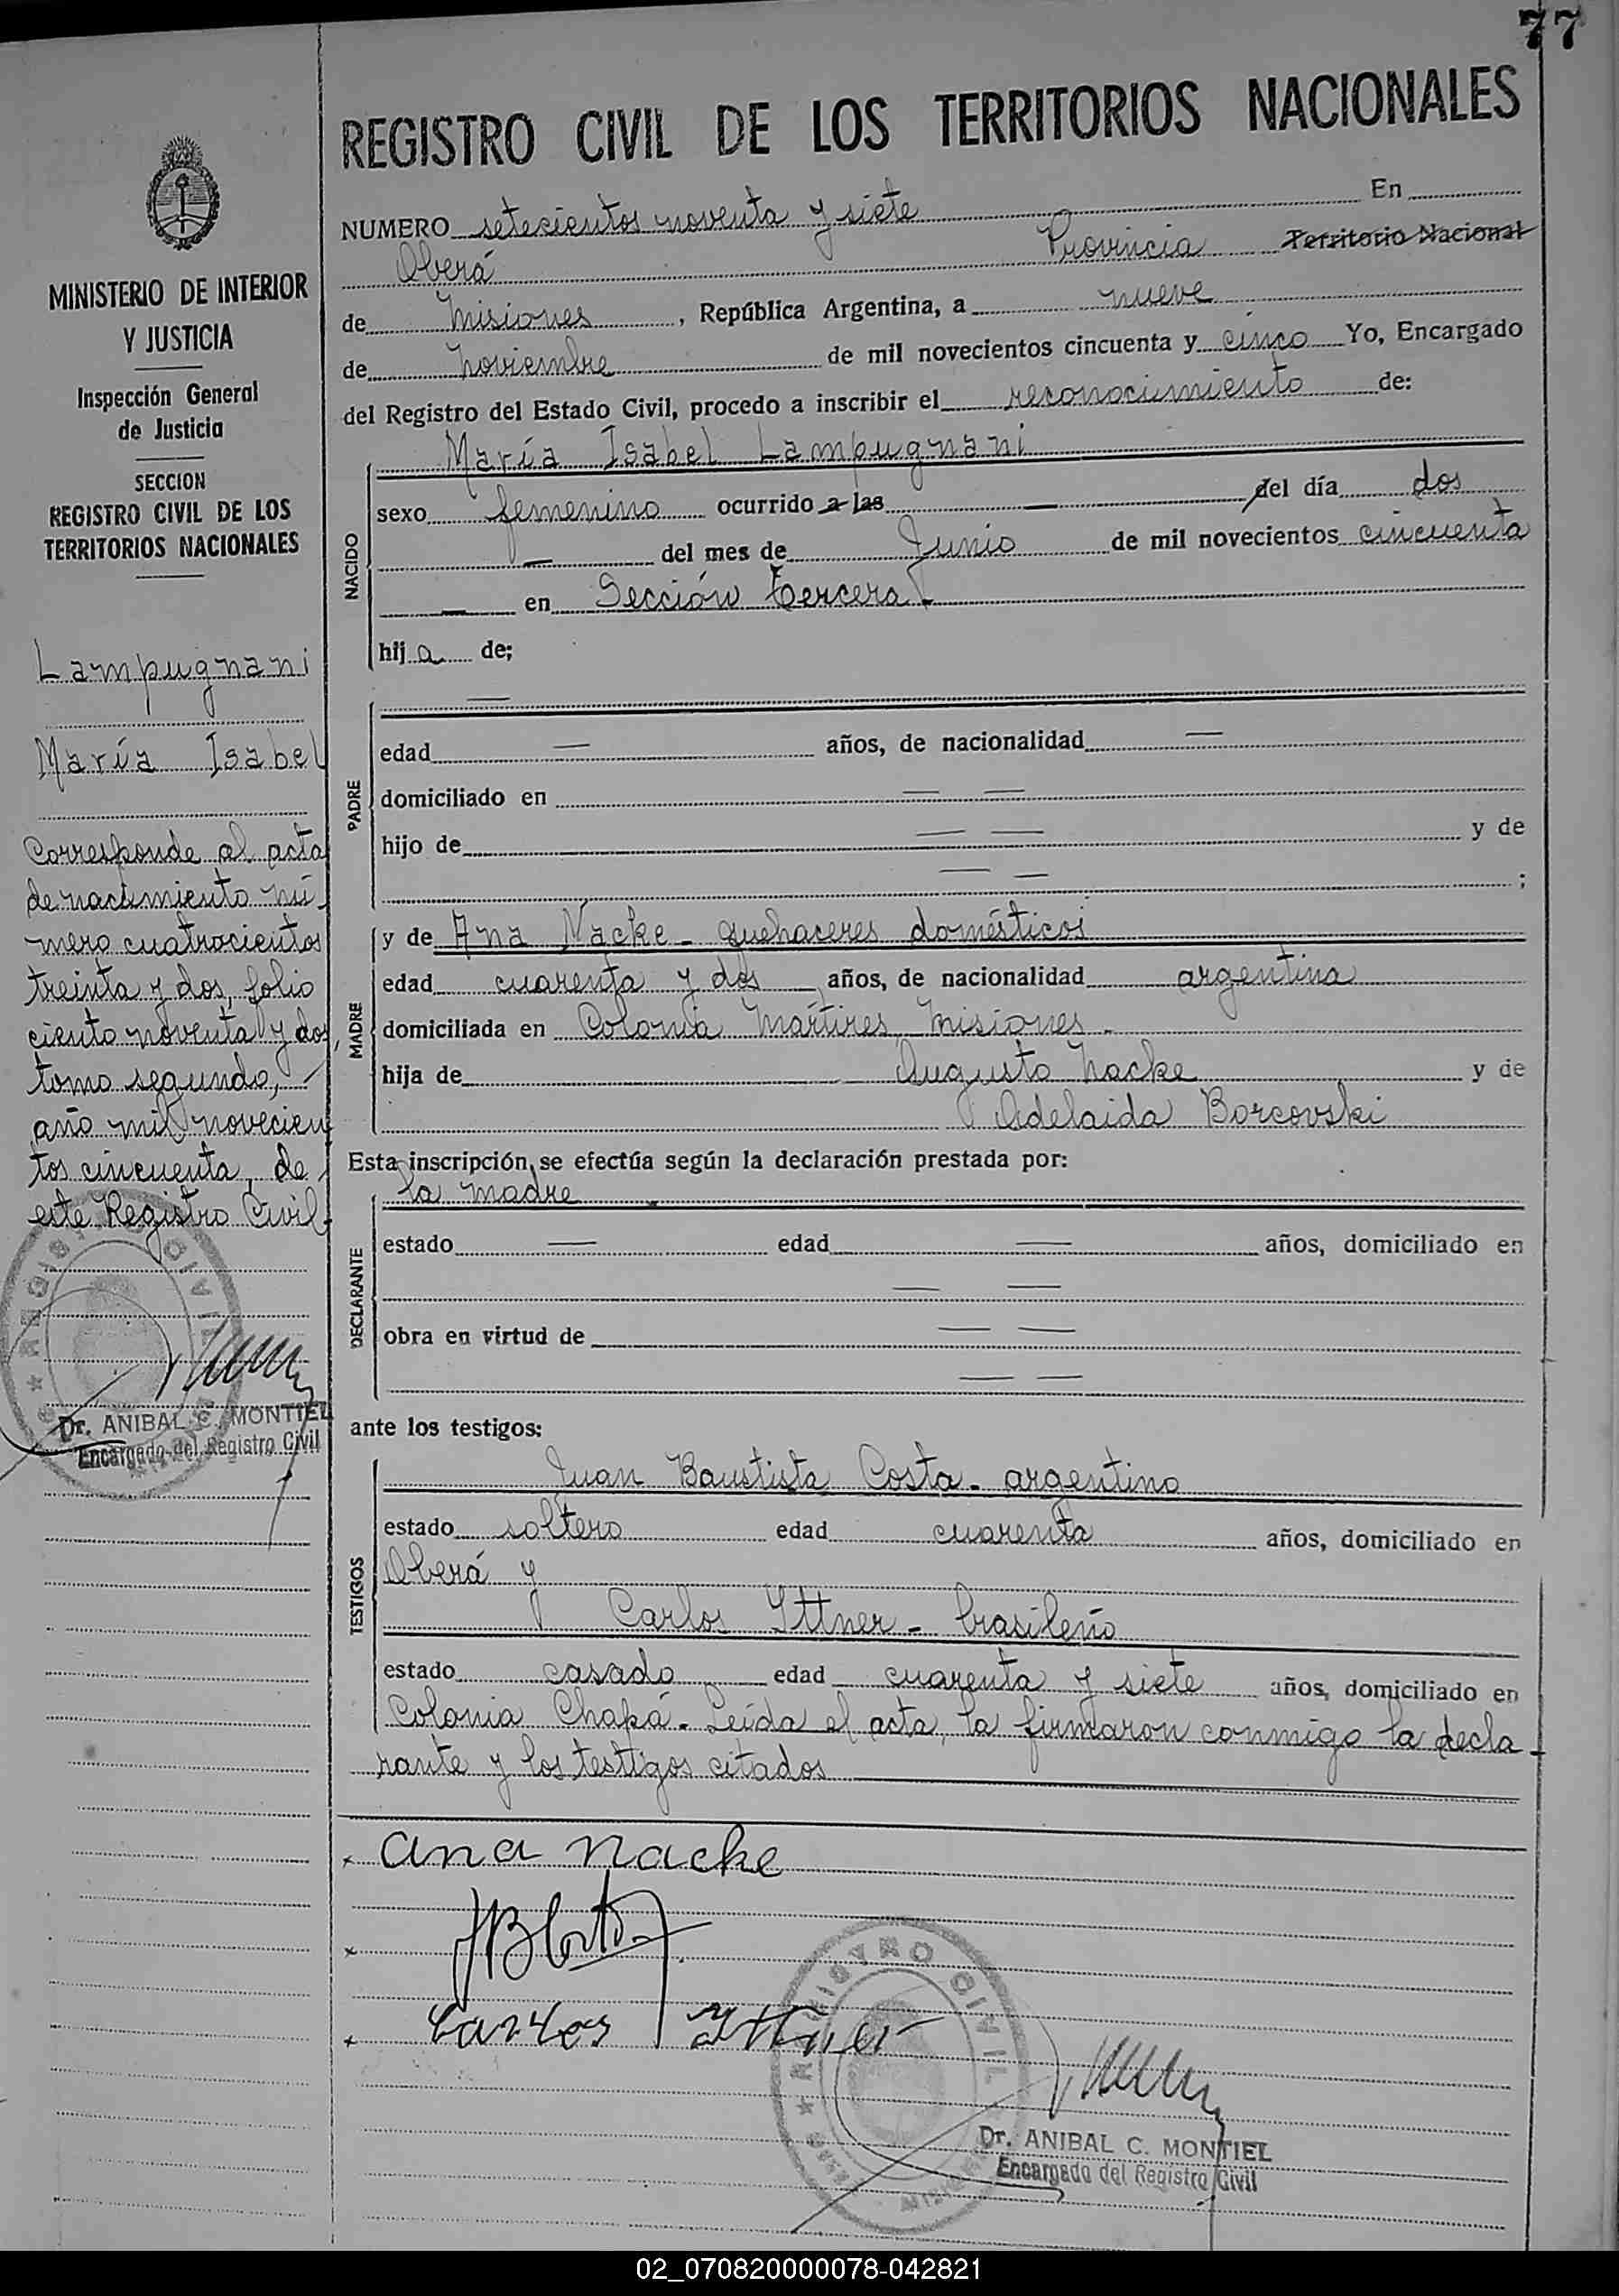 77
REGISTRO CIVIL DE LOS TERRITORIOS NACIONALES
MINISTERIO DE INTERIOR
Y JUSTICIA
Inspección General
de Justicia
SECCION
REGISTRO CIVIL DE LOS
TERRITORIOS NACIONALES
Lampugnani
María Isabel
Corresponde al acta
de nacimiento nú-
mero cuatrocientos
treinta y dos, folio
ciento noventa y dos,
tomo segundo,
año mil novecien
tos cincuenta, de
este Registro Civil.
REGISTRO CIVIL
Dr. ANIBAL C. MONTIEL
Encargado del Registro Civil
NUMERO setecientos noventa y siete En
Oberá Provincia Territorio Nacional
de Misiones, República Argentina, a nueve
de noviembre de mil novecientos cincuenta y cinco Yo, Encargado
del Registro del Estado Civil, procedo a inscribir el reconocimiento de:
NACIDO
María Isabel Lampugnani
sexo femenino ocurrido a las — del día dos
— del mes de Junio de mil novecientos cincuenta
— en Sección tercera.-
hija de;
PADRE
—
edad — años, de nacionalidad —
domiciliado en — —
hijo de — — y de
— — ;
MADRE
y de Ana Nacke - quehaceres domésticos
edad cuarenta y dos años, de nacionalidad argentina
domiciliada en Colonia Mártires Misiones -
hija de Augusto Nacke y de
Adelaida Borcovski
Esta inscripción se efectúa según la declaración prestada por:
DECLARANTE
la madre
estado — edad — años, domiciliado en
— —
obra en virtud de — —
— —
ante los testigos:
TESTIGOS
Juan Bautista Costa - argentino
estado soltero edad cuarenta años, domiciliado en
Oberá y
Carlos Ittner - brasileño
estado casado edad cuarenta y siete años, domiciliado en
Colonia Chapá. Leída el acta, la firmaron conmigo la decla-
rante y los testigos citados
x ana nacke
x JBCosta
x Carlos Ittner
REGISTRO CIVIL
Dr. ANIBAL C. MONTIEL
Encargado del Registro Civil
02_070820000078-042821